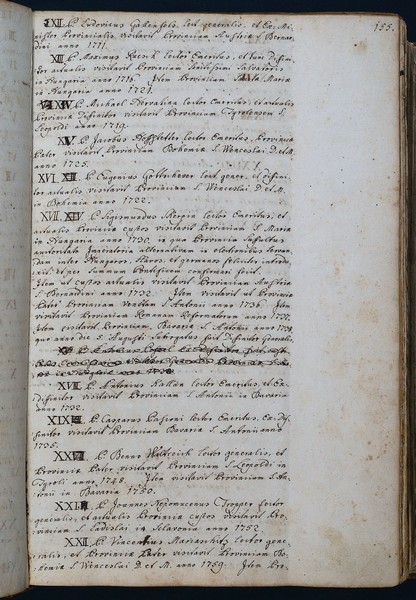 155.
XII. P. Ludovicus Gakenfels Lect. generalis, et Ex-Mi-
nister Provincialis visitavit Provinciam Austriæ S. Bernar-
dini anno 1711.
XIII. P. Maximus Lector Emeritus, et tum Difini-
tor actualis visitavit Provinciam Salvatoris
in Hungaria anno 1716. Item Provinciam Sanctæ Mariæ
in Hungaria anno 1721.
XIV. P. Michael Lector Emeritus, et actualis
Provinciæ Difinitor visitavit Provinciam Tyrolensem S.
Leopoldi anno 1719.
XV. P. Jacobus Lector Emeritus, Provinciæ
Pater visitavit Provinciam Bohemiæ S. Wenceslai D. et M.
anno 1725.
XVI. P. Eugenius Gottschever Lect. gener. et Difini-
tor actualis visitavit Provinciam S. Wenceslai D. et M.
in Bohemia anno 1722.
XVII. P. Sigismundus Skerpin Lector Emeritus, et
actualis Provinciæ Custos visitavit Provinciam S. Mariæ
in Hungaria anno 1730. in qua Provincia suffultus
authoritate Imperatoria alternativam in electionibus servan-
dam inter Hungaros, Slavos, et germanos feliciter introdu-
xit, et per Summum Pontificem confirmari fecit.
Item ut Custos actualis visitavit Provinciam Austriæ
S. Bernardini anno 1732. Item visitavit ut Provinciæ
Pater Provinciam Venetam S. Antonii anno 1736. Item
visitavit Provinciam Romanam Reformatorum anno 1737.
Item visitavit Provinciam Bavariæ S. Antonii anno 1738.
quo anno die 3. Augusti Subrogatus fuit Difinitor Generalis.
XVIII. P. Antonius Lector Emeritus, et Ex-
difinitor visitavit Provinciam S. Antonii in Bavaria
anno 1732.
XIX. P. Casparus Lector Emeritus, Ex-Di-
finitor visitavit Provinciam Bavariæ S. Antonii anno
1735.
XX. P. Benno Lector generalis, et
Provinciæ Pater visitavit Provinciam S. Leopoldi in
Tyroli anno 1748. Item visitavit Provinciam S. An-
tonii in Bavaria 1750.
XXI. P. Joannes Nepomucenus Lector
generalis, et actualis Provinciæ Custos visitavit Pro-
vinciam S. Ladislai in Sclavonia anno 1752.
XXII. P. Vincentius Lector gene-
ralis, et Provinciæ Pater visitavit Provinciam Bo-
hemiæ S. Wenceslai D. et M. anno 1759. Item Pro-